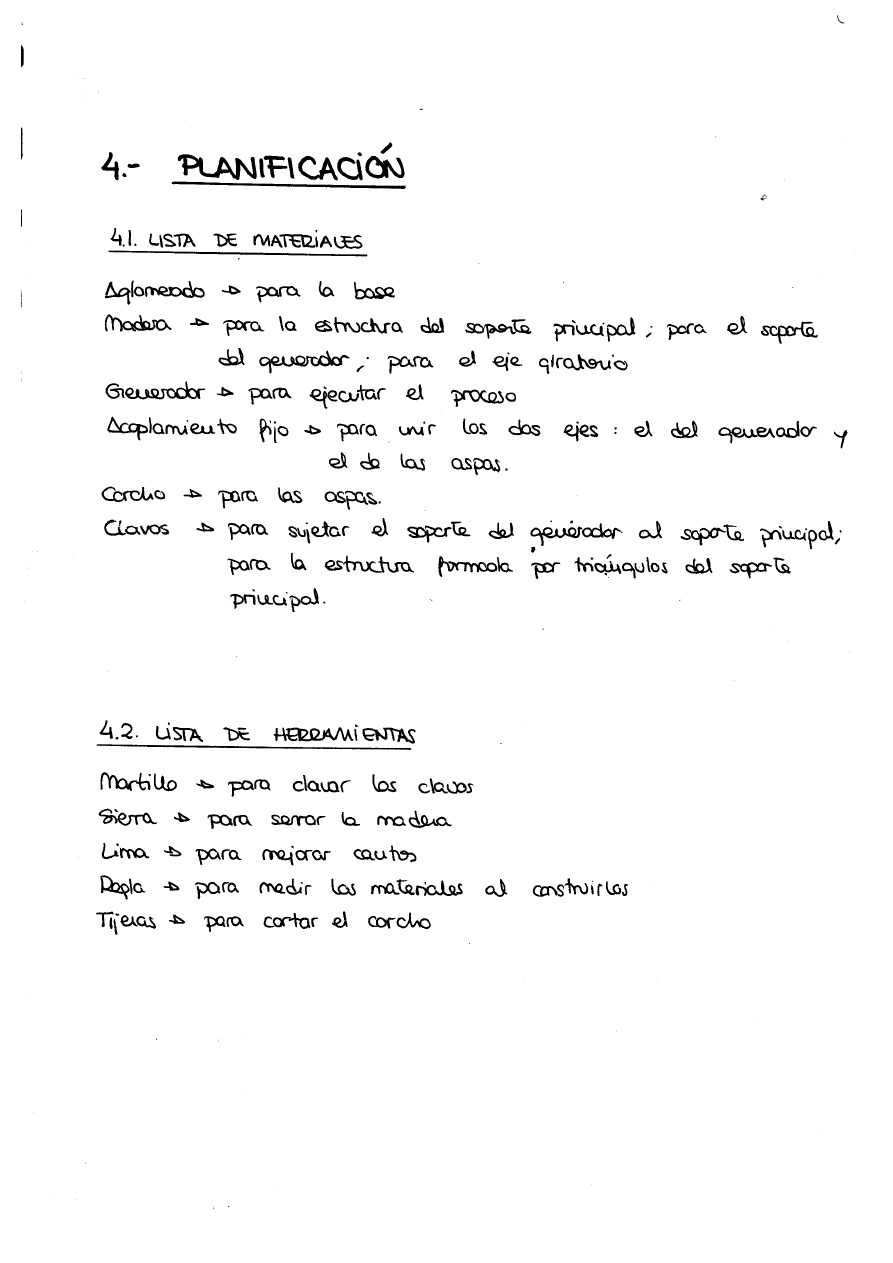 4.- PLANIFICACIÓN
4.1. LISTA DE MATERIALES
Aglomerado → para la base
Madera → para la estructura del soporte principal; para el soporte
del generador; para el eje giratorio
Generador → para ejecutar el proceso
Acoplamiento fijo → para unir los dos ejes: el del generador y
el de las aspas.
Corcho → para las aspas.
Clavos → para sujetar el soporte del generador al soporte principal;
para la estructura formada por triángulos del soporte
principal.
4.2. LISTA DE HERRAMIENTAS
Martillo → para clavar los clavos
Sierra → para serrar la madera
Lima → para mejorar cantos
Regla → para medir los materiales al construirlos
Tijeras → para cortar el corcho